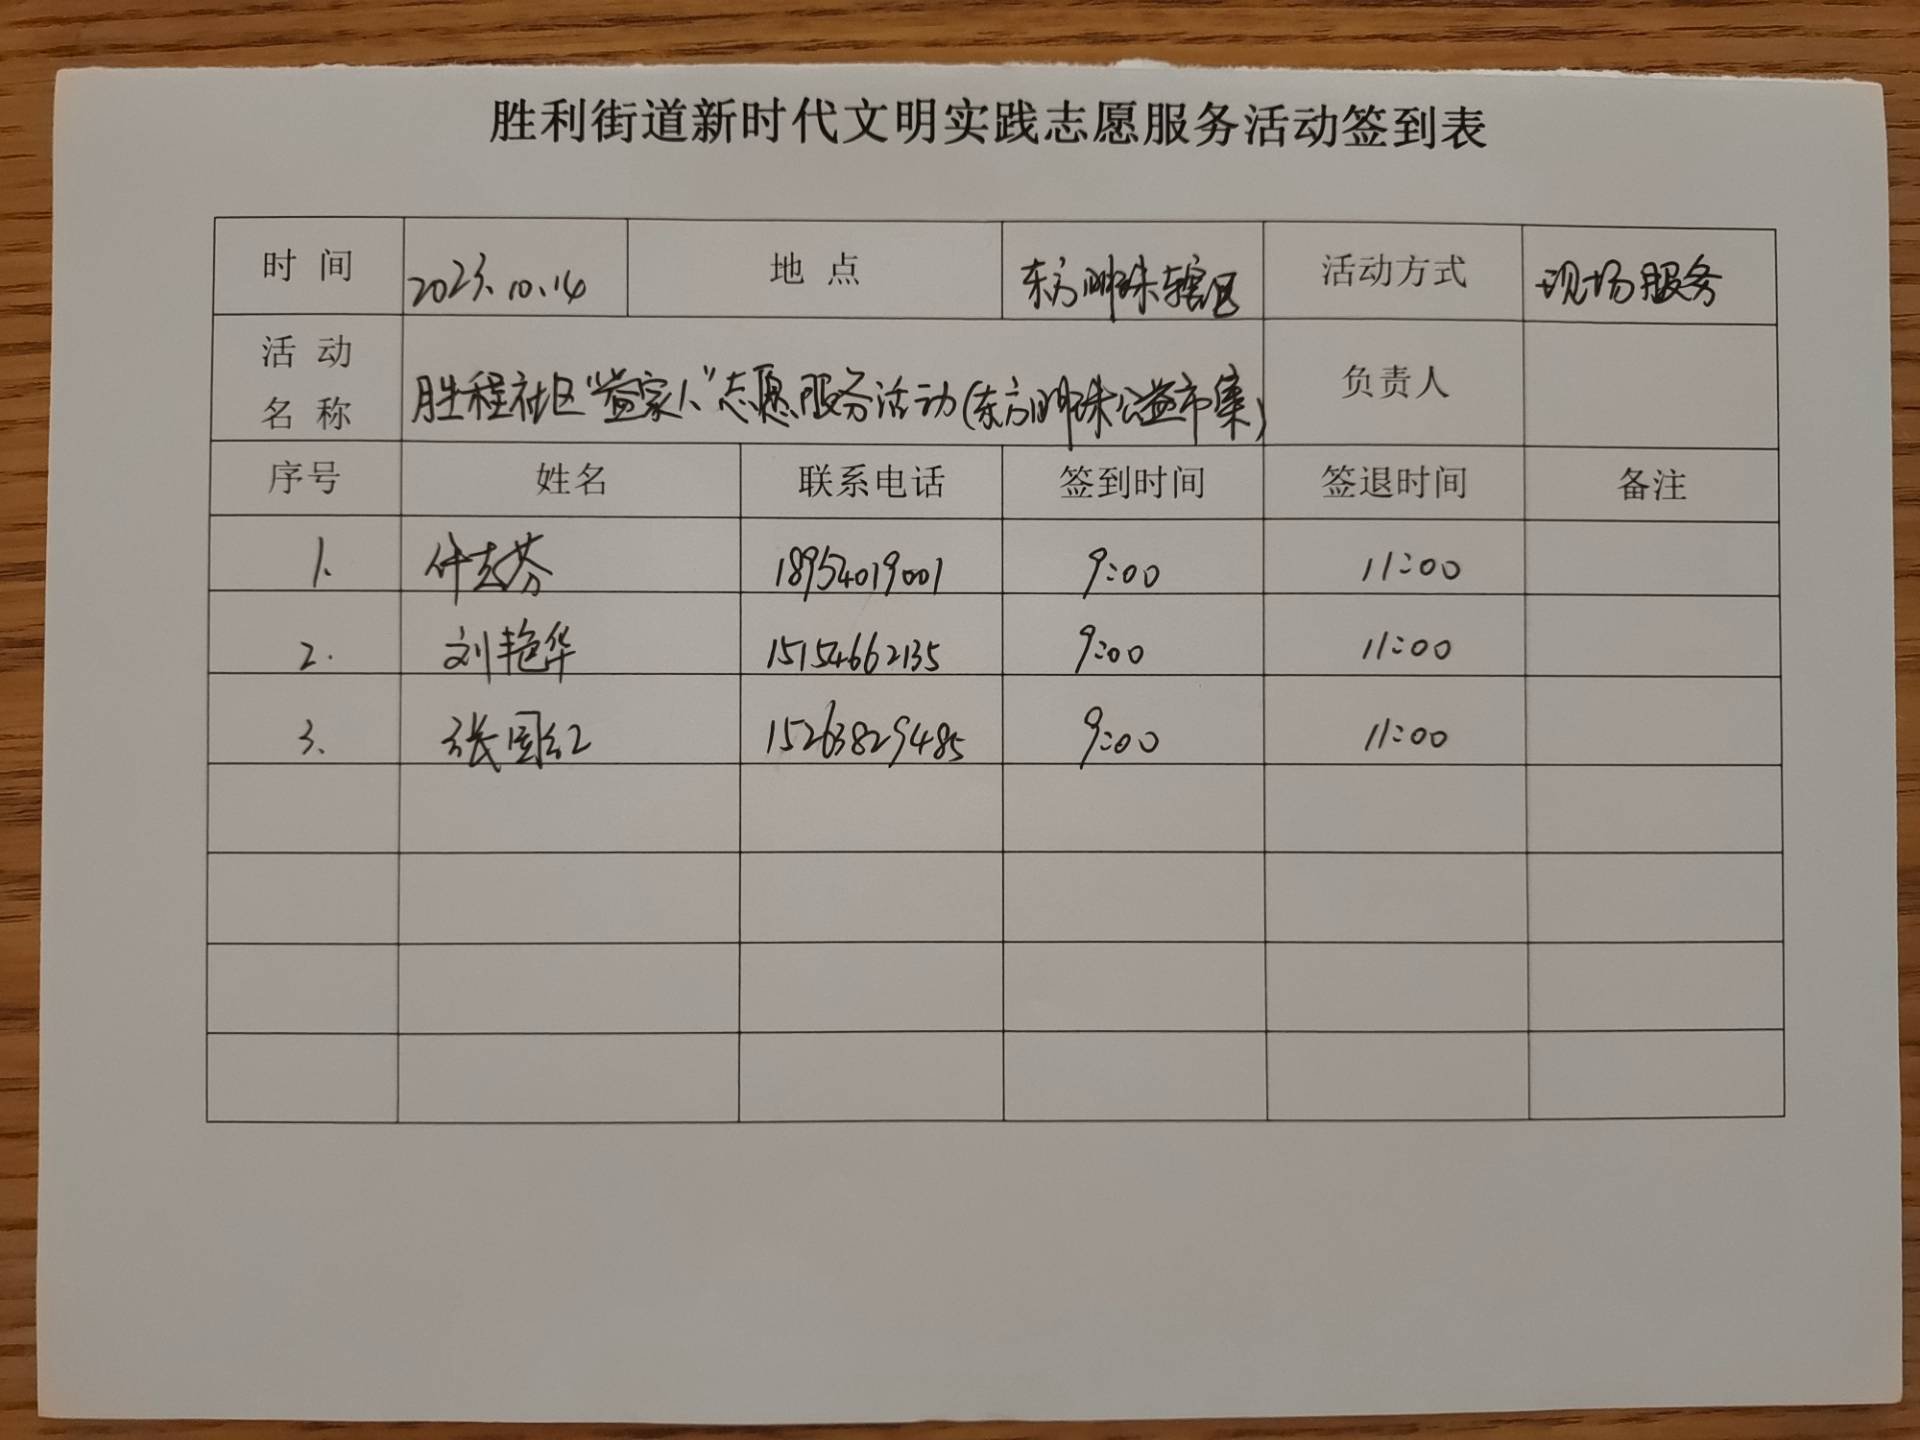 胜利街道新时代文明实践志愿服务活动签到表
时 间 2023.10.14 地 点 东方明珠辖区 活动方式 现场服务
活 动
名 称 胜程社区"益家人"志愿服务活动(东方明珠公益市集) 负责人
序号 姓名 联系电话 签到时间 签退时间 备注
1. 18954019001 9:00 11:00
2. 刘艳华 15154662135 9:00 11:00
3. 张国红 15263829485 9:00 11:00